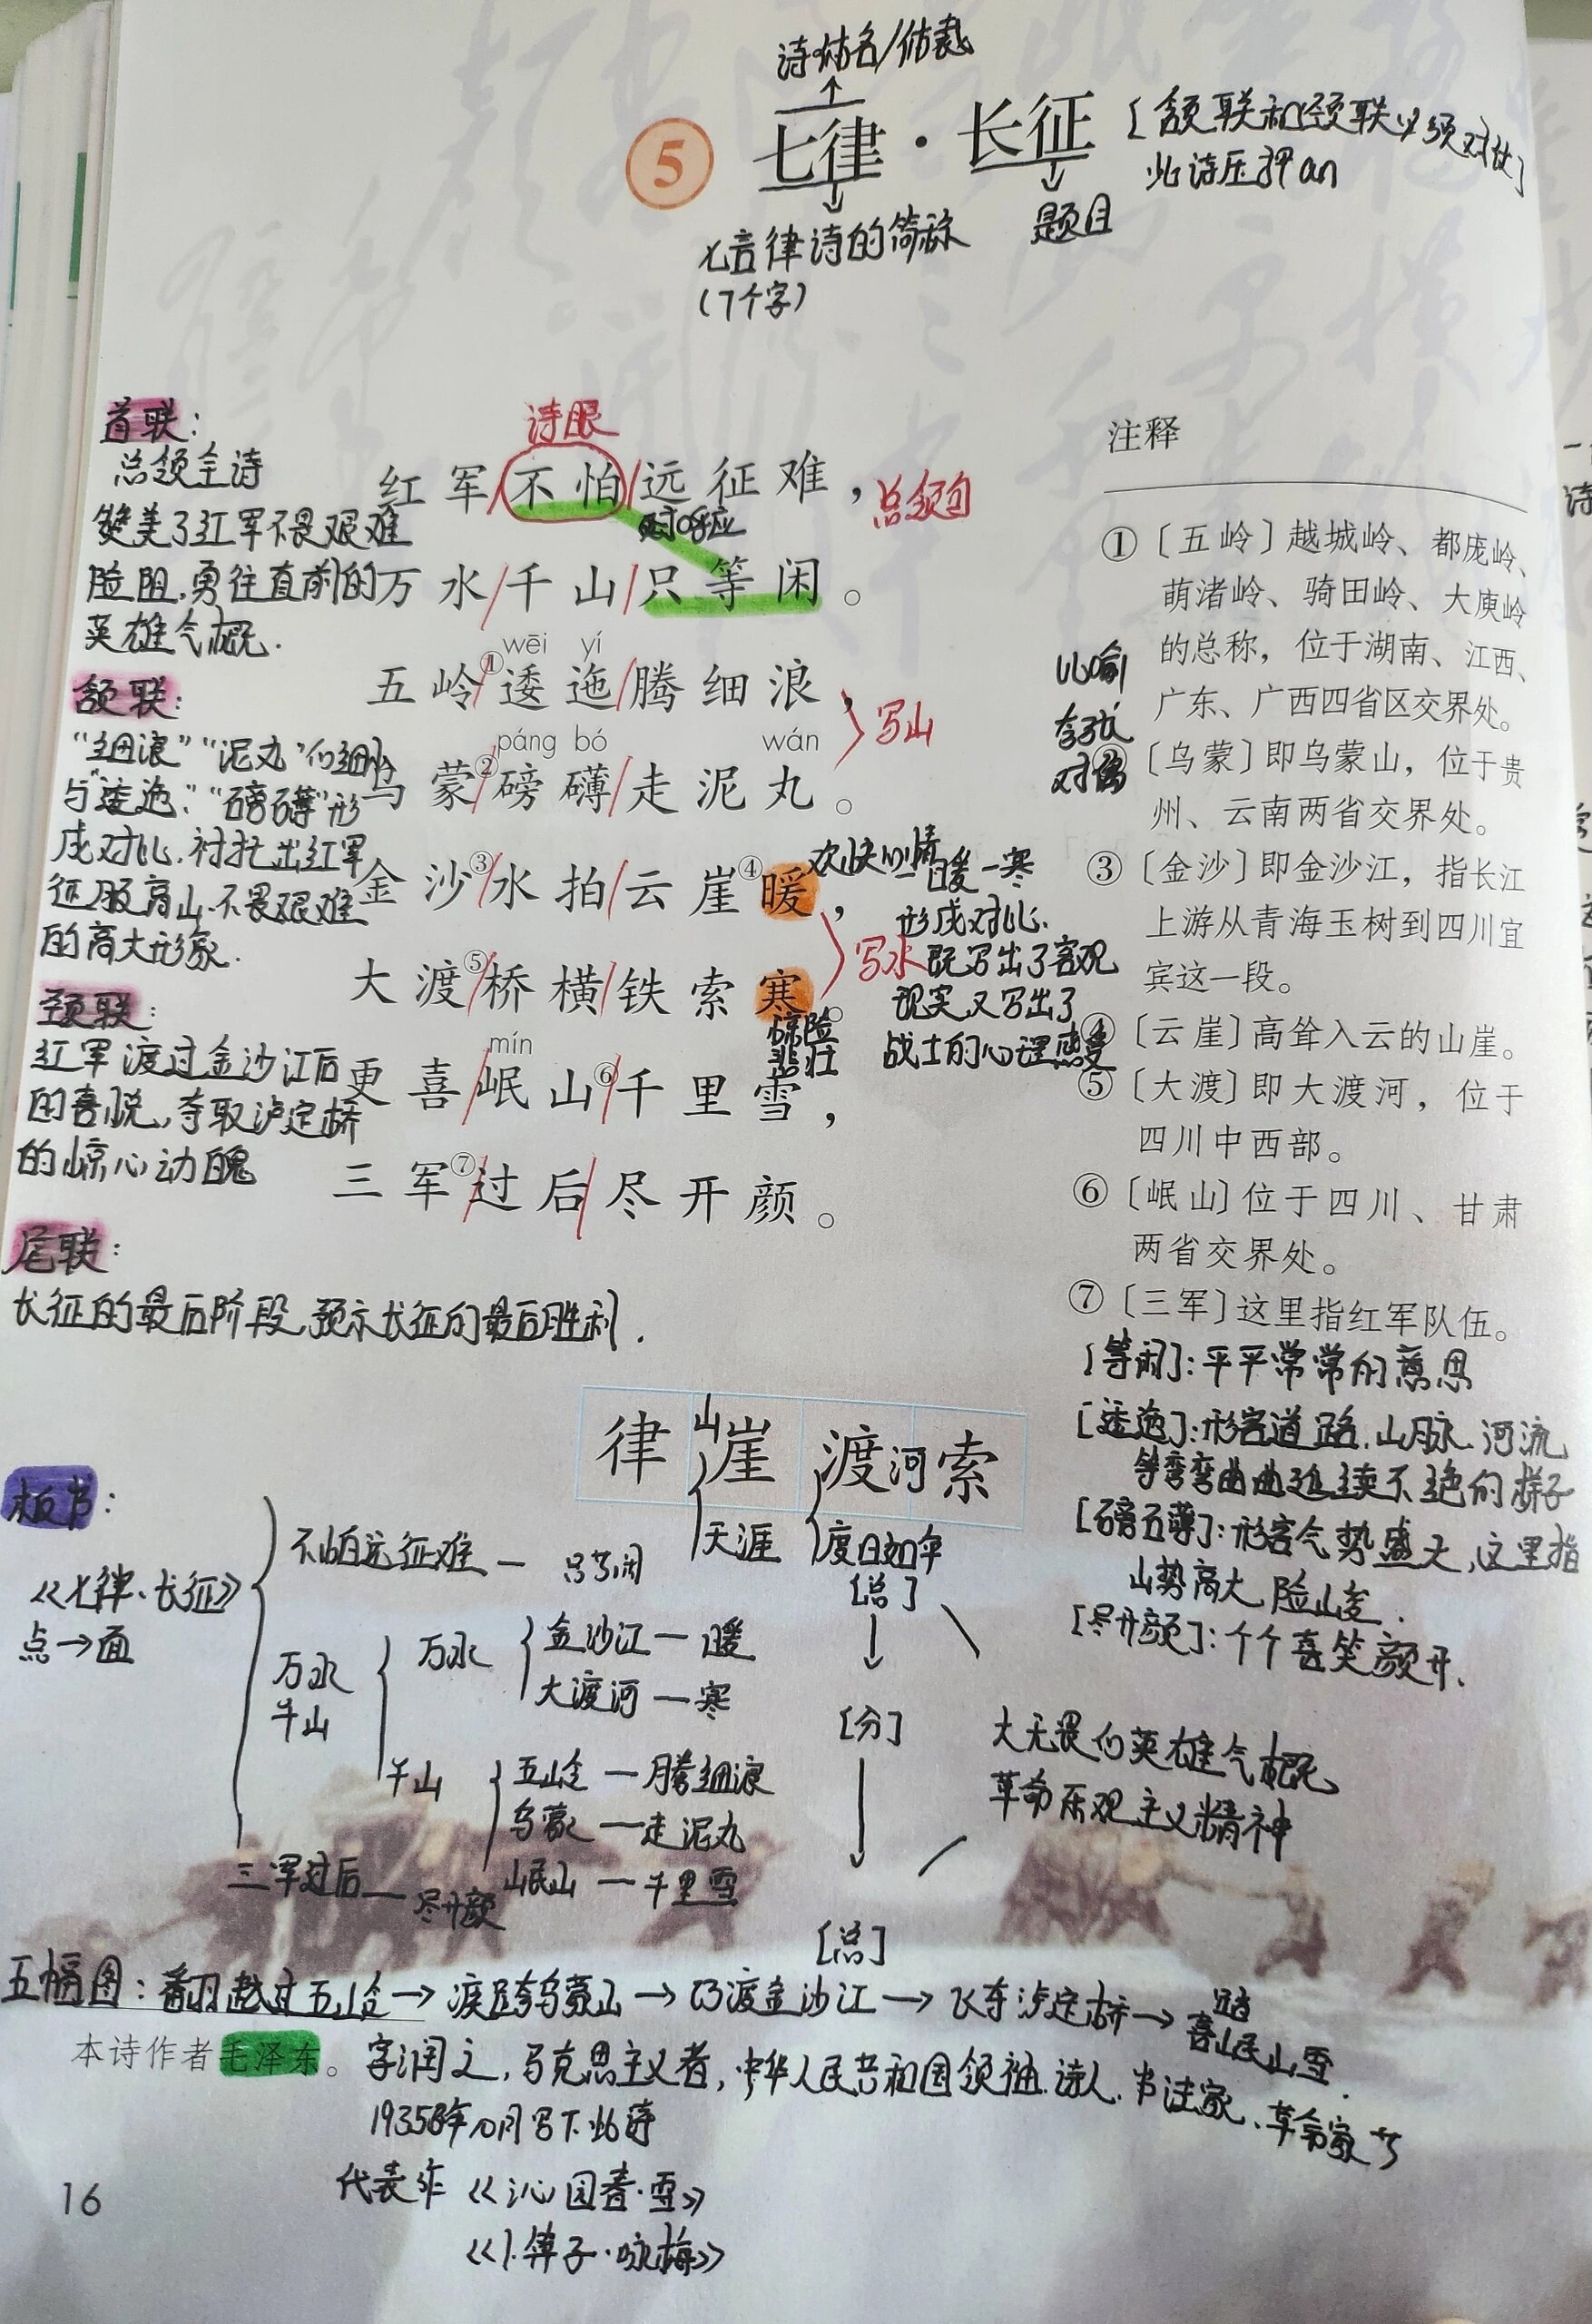 诗体名/体裁
5 七律·长征
[颔联和颈联必须对仗]
此诗压押an
七言律诗的简称
(7个字)
题目
首联:
总领全诗
赞美了红军不畏艰难
险阻,勇往直前的
英雄气概.
颔联:
“细浪”“泥丸”的细小
与“逶迤”“磅礴”形
成对比,衬托出红军
征服高山、不畏艰难
的高大形象.
颈联:
红军渡过金沙江后
的喜悦,夺取泸定桥
的惊心动魄
尾联:
长征的最后阶段,预示长征的最后胜利.
诗眼
红军/不怕/远征难,
总领句
呼应
万水/千山/只等闲。
wēi yí
五岭①/逶迤/腾细浪,
páng bó wán
乌蒙②/磅礴/走泥丸。
写山
金沙③/水拍/云崖④暖,
欢快心情
大渡⑤/桥横/铁索寒。
写水
惊险
悲壮
暖—寒
形成对比.
既写出了客观
现实,又写出了
战士的心理感受
mín
更喜/岷山⑥/千里雪,
三军⑦/过后/尽开颜。
比喻
夸张
对偶
注释
①〔五岭〕越城岭、都庞岭、
萌渚岭、骑田岭、大庾岭
的总称,位于湖南、江西、
广东、广西四省区交界处。
②〔乌蒙〕即乌蒙山,位于贵
州、云南两省交界处。
③〔金沙〕即金沙江,指长江
上游从青海玉树到四川宜
宾这一段。
④〔云崖〕高耸入云的山崖。
⑤〔大渡〕即大渡河,位于
四川中西部。
⑥〔岷山〕位于四川、甘肃
两省交界处。
⑦〔三军〕这里指红军队伍。
[等闲]:平平常常的意思
[逶迤]:形容道路、山脉、河流
等弯弯曲曲延续不绝的样子
[磅礴]:形容气势盛大,这里指
山势高大险峻.
[尽开颜]:个个喜笑颜开.
律 崖 渡 索
山
河
天涯
度日如年
板书:
《七律·长征》
点→面
不怕远征难 — 只等闲
万水
千山
万水
金沙江 — 暖
大渡河 — 寒
千山
五岭 — 腾细浪
乌蒙 — 走泥丸
岷山 — 千里雪
三军过后 — 尽开颜
[总]
[分]
[总]
大无畏的英雄气概
革命乐观主义精神
五幅图:翻越过五岭→疾跨乌蒙山→巧渡金沙江→飞夺泸定桥→喜踏岷山雪.
本诗作者毛泽东。字润之,马克思主义者,中华人民共和国领袖、诗人、书法家、革命家
1935年10月写下此诗
代表作《沁园春·雪》
《卜算子·咏梅》
16